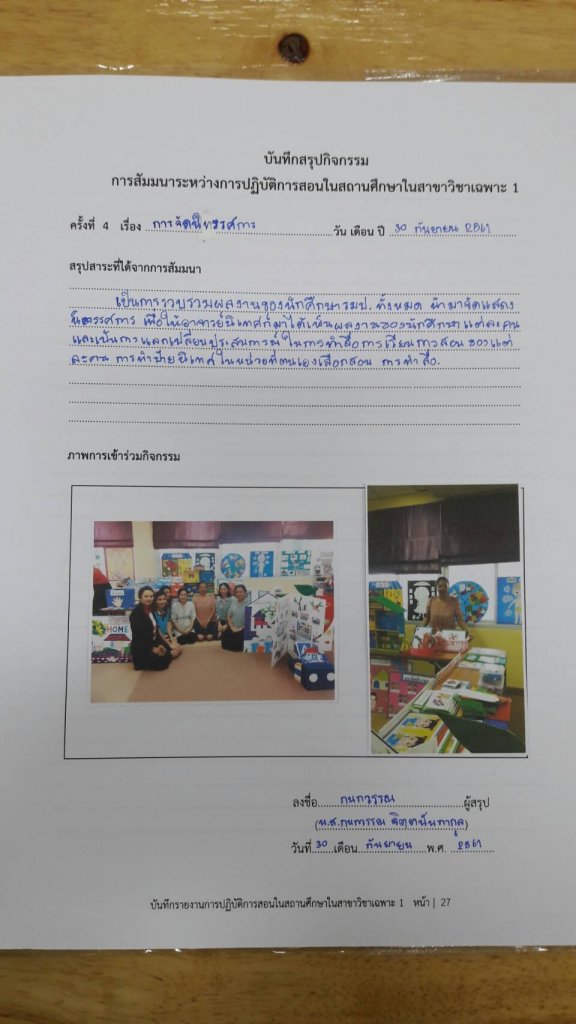 บันทึกสรุปกิจกรรม
การสัมมนาระหว่างการปฏิบัติการสอนในสถานศึกษาในสาขาวิชาเฉพาะ 1
ครั้งที่ 4 เรื่อง การจัดนิทรรศการ วัน เดือน ปี 30 กันยายน 2561
สรุปสาระที่ได้จากการสัมมนา
เป็นการรวบรวมผลงานของนักศึกษารมป. ทั้งหมด นำมาจัดแสดง
นิทรรศการ เพื่อให้อาจารย์นิเทศก์มาได้เห็นผลงานของนักศึกษาแต่ละคน
และเป็นการแลกเปลี่ยนประสบการณ์ ในการทำสื่อการเรียนการสอน ของแต่
ละคน การทำป้ายนิเทศ ในหน่วยที่ตนเองเลือกสอน การทำสื่อ.
ภาพการเข้าร่วมกิจกรรม
HOME
ลงชื่อ กนกวรรณ ผู้สรุป
(น.ส.กนกวรรณ
วันที่ 30 เดือน กันยายน พ.ศ. 2561
บันทึกรายงานการปฏิบัติการสอนในสถานศึกษาในสาขาวิชาเฉพาะ 1 หน้า | 27